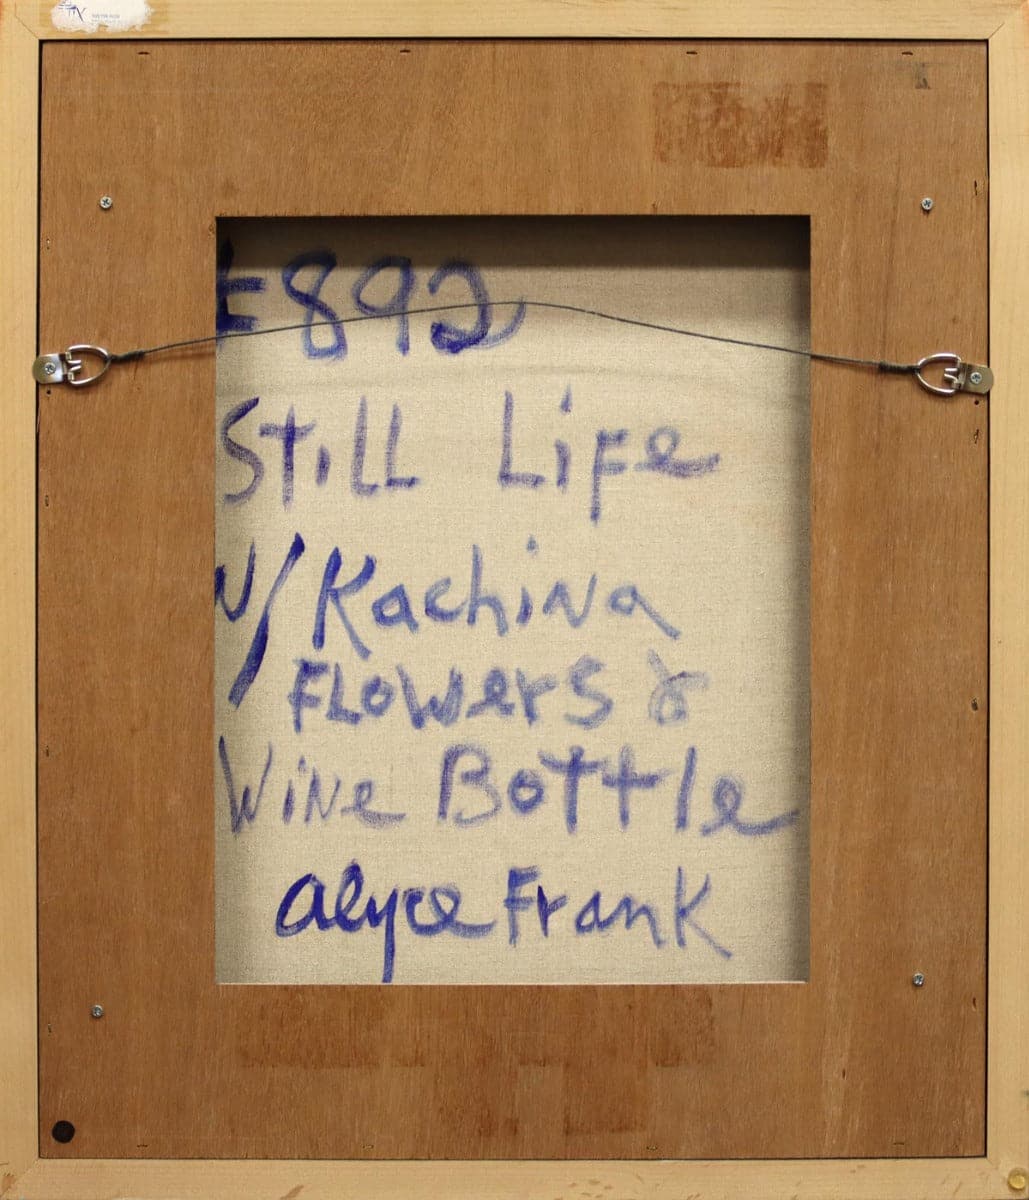 #892
Still Life
W/Kachina
Flowers &
Wine Bottle
Alyce Frank